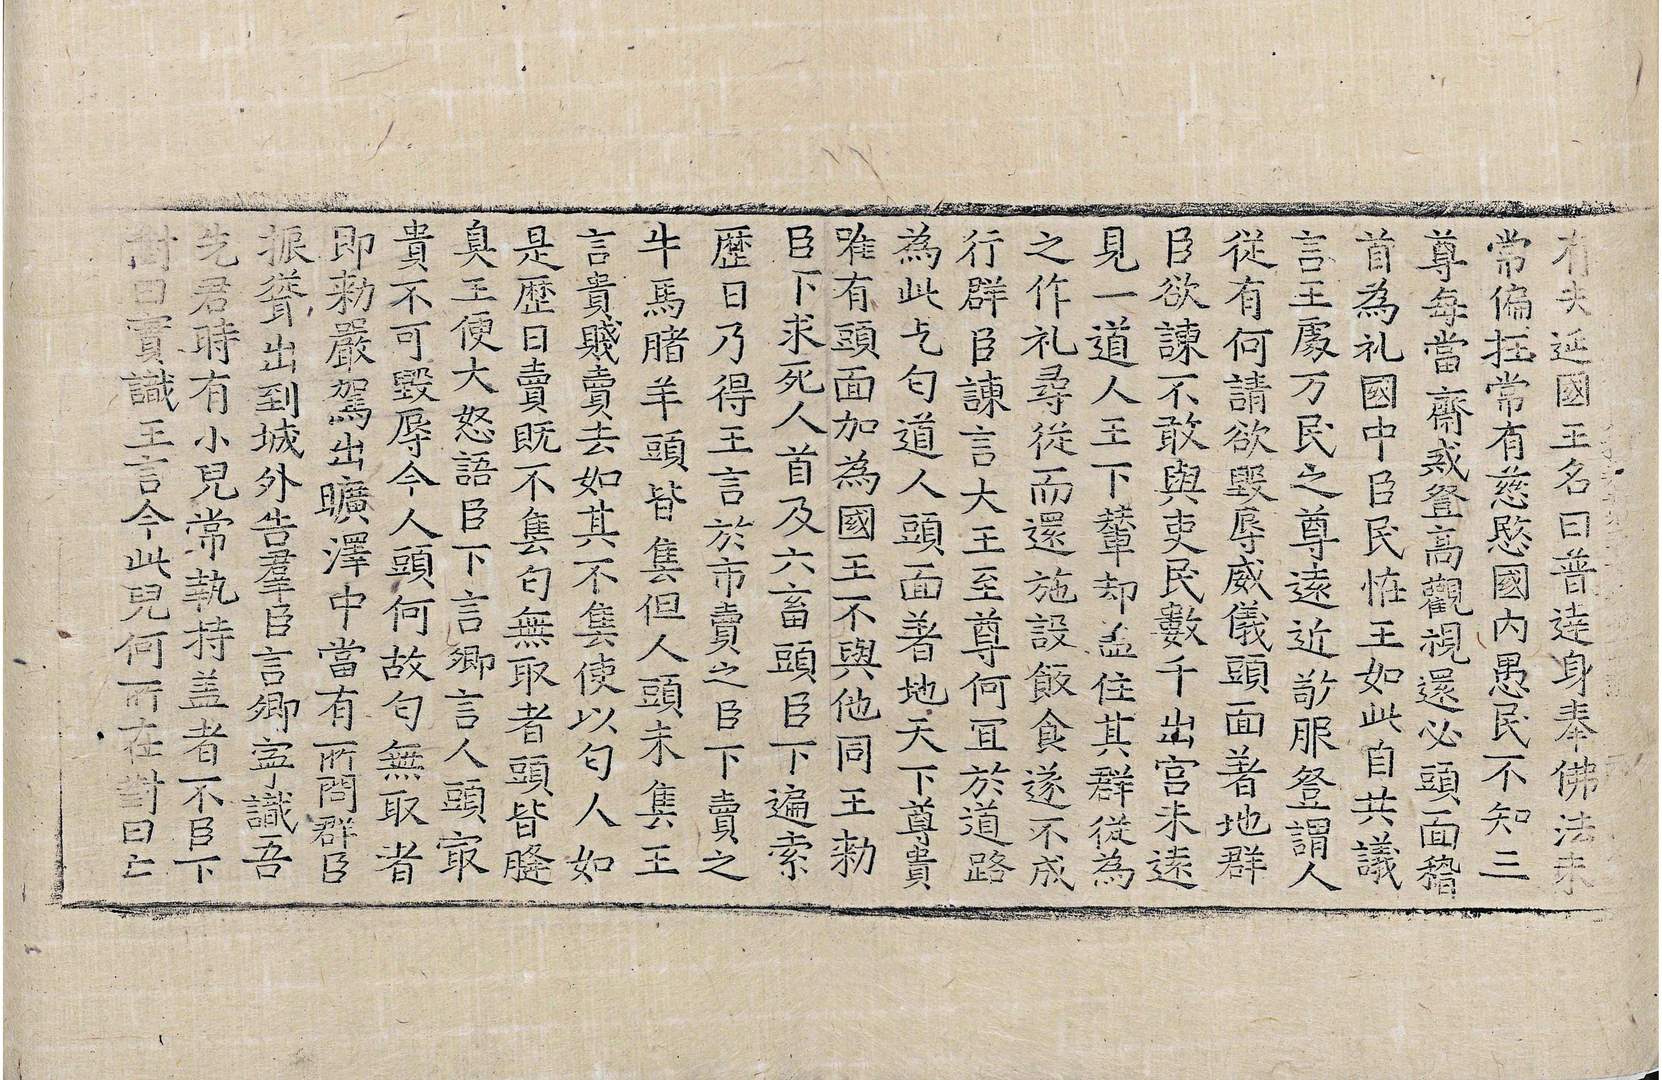 有夫延國王名曰普達身奉佛法未
常偏抂常有慈愍國內愚民不知三
尊每當齋戒登高觀視還必頭面稽
首為礼國中臣民恠王如此自共議
言王處万民之尊遠近敬服發謂人
從有何請欲毀辱威儀頭面著地群
臣欲諫不敢與吏民數千出宮未遠
見一道人王下輦却盖住其群從為
之作礼尋從而還施設飯食遂不成
行群臣諫言大王至尊何冝於道路
為此乞匃道人頭面著地天下尊貴
唯有頭面加為國王不與他同王勑
臣下求死人首及六畜頭臣下遍索
歷日乃得王言於市賣之臣下賣之
牛馬賭羊頭皆售但人頭未售王
言貴賤賣去如其不售使以匃人如
是歷日賣既不售匃無取者頭皆膖
臭王便大怒語臣下言卿言人頭㝡
貴不可毀辱今人頭何故匃無取者
即勑嚴駕出曠澤中當有所問群臣
振聳出到城外告羣臣言卿寜識吾
先君時有小兒常執持盖者不臣下
對曰實識王言今此兒何所在對曰亡